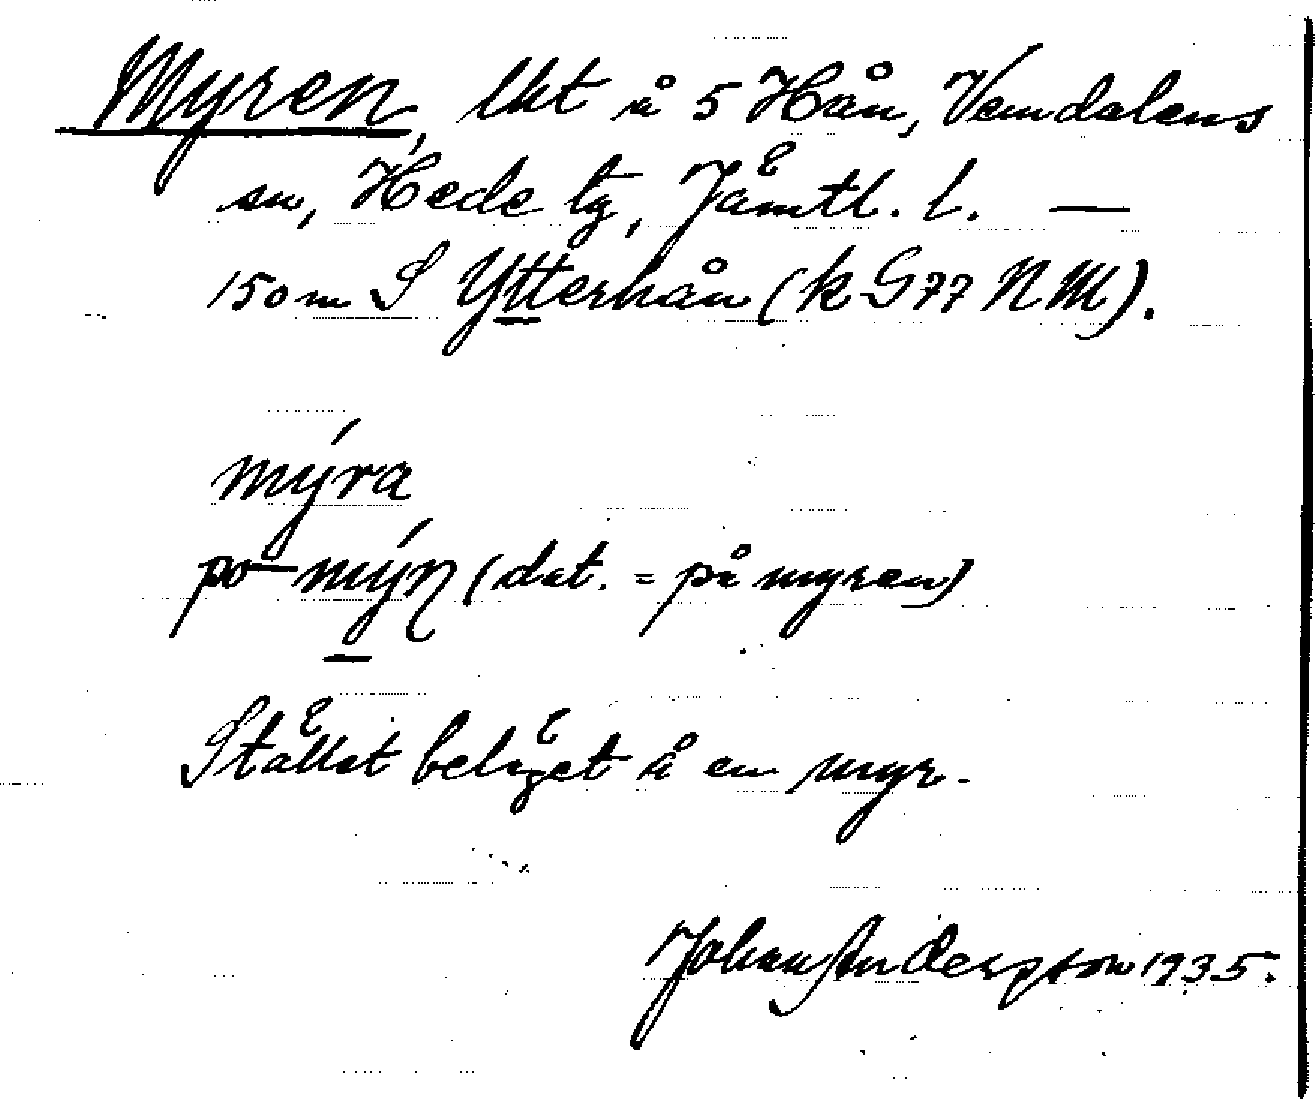 Myren, lht å 5 Hån, Vemdalens
sn, Hede tg, Jämtl. l. —
150 m S Ytterhån (k G 77 N M).
mýra
po mýn̥ (dat. = på myren)
Stället beläget å en myr.
Johan Andersson 1935.